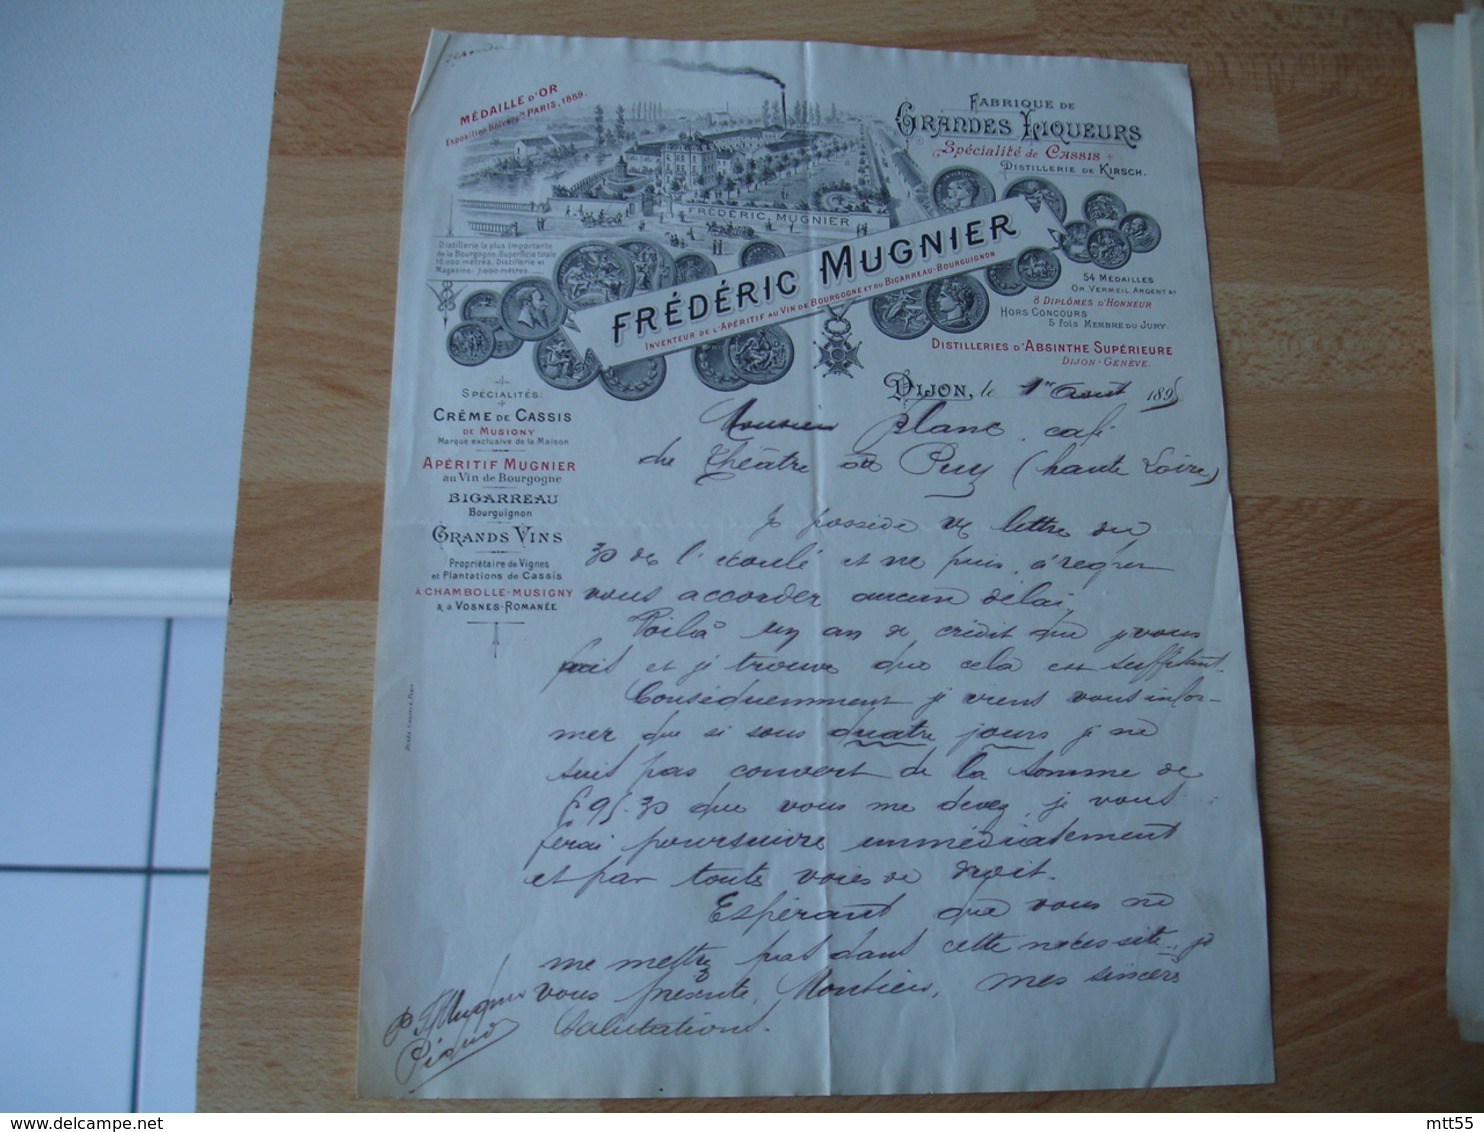 MÉDAILLE D'OR
Exposition Univers^lle PARIS, 1889.
FABRIQUE DE
GRANDES LIQUEURS
Spécialité de CASSIS
DISTILLERIE DE KIRSCH.
FRÉDÉRIC MUGNIER
Distillerie la plus importante
de la Bourgogne. Superficie totale
16.000 mètres. Distillerie et
Magasins: 7.000 mètres.
FRÉDÉRIC MUGNIER
INVENTEUR DE L'APÉRITIF AU VIN DE BOURGOGNE ET DU BIGARREAU-BOURGUIGNON
54 MÉDAILLES
OR, VERMEIL ARGENT &
8 DIPLÔMES D'HONNEUR
HORS CONCOURS
5 FOIS MEMBRE DU JURY.
DISTILLERIES D'ABSINTHE SUPÉRIEURE
DIJON-GENÈVE.
DIJON, le 1er Aout 1895
SPÉCIALITÉS:
CRÈME DE CASSIS
DE MUSIGNY
Marque exclusive de la Maison
APÉRITIF MUGNIER
au Vin de Bourgogne
BIGARREAU
Bourguignon
GRANDS VINS
Propriétaire de Vignes
et Plantations de Cassis
A CHAMBOLLE-MUSIGNY
& à VOSNES-ROMANÉE
Monsieur Blanc, café
du Théatre au Puy (haute Loire)
Je possède v/ lettre du
30 de l'écoulé et ne puis, à regret
vous accorder aucun délai,
Voilà un an de crédit que je vous
fais et je trouve que cela est suffisant.
Conséquemment je viens vous infor-
mer que si sous quatre jours je ne
suis pas couvert de la somme de
f. 95.30 que vous me devez, je vous
ferai poursuivre immédiatement
et par toute voies de droit.
Espérant que vous ne
me mettrez pas dans cette nécessité, je
vous présente, Monsieur, mes sincères
Salutations.
P. F. Mugnier
mtt55